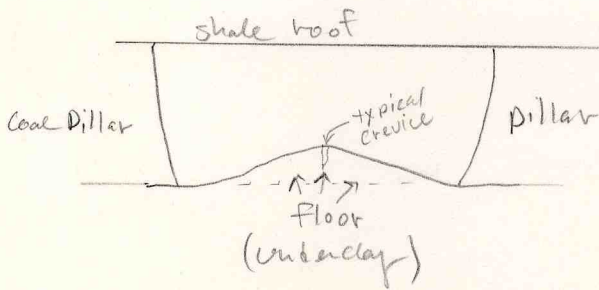 shale roof
Coal Pillar
typical
crevice
pillar
floor
(underclay)